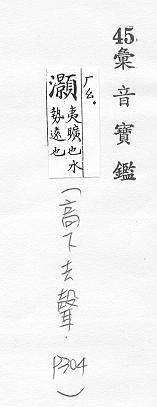 45.彙音寶鑑
ㄏㄠˊ
灝 夷曠也水
勢遠也
(高下去聲.P304)